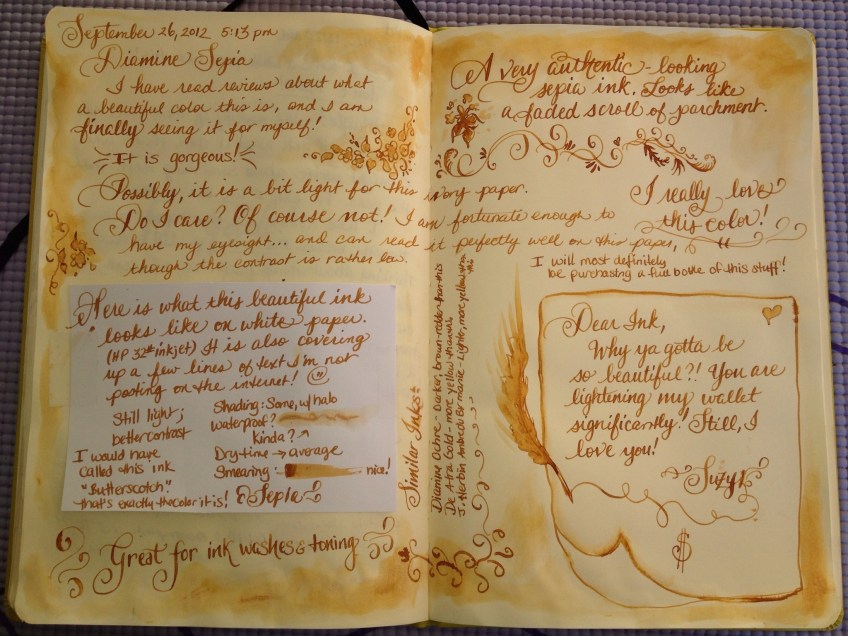 September 26, 2012 5:13 pm
Diamine Sepia
I have read reviews about what
a beautiful color this is, and I am
finally seeing it for myself!
It is gorgeous!
Possibly, it is a bit light for this ivory paper.
Do I care? Of course not! I am fortunate enough to
have my eyesight... and can read it perfectly well on this paper,
though the contrast is rather low.
Here is what this beautiful ink
looks like on white paper.
(HP 32# inkjet) It is also covering
up a few lines of text I'm not
posting on the internet!
Still light;
better contrast
I would have
called this ink
"Butterscotch"
that's exactly the color it is!
Shading: Some, w/ halo
waterproof?
Kinda?
Dry time → average
Smearing: nice!
Sepia
Great for ink washes & toning
Similar Inks:
Diamine Ochre - Darker, brown-redder than this
De Atra. Gold - more yellow than this,
J. Herbin Ambre de Birmanie - Lighter, more yellow than this
A very authentic-looking
sepia ink. Looks like
a faded scroll of parchment.
I really love
this color!
I will most definitely
be purchasing a full bottle of this stuff!
Dear Ink,
Why ya gotta be
so beautiful?! You are
lightening my wallet
significantly! Still, I
love you!
~Suzy
$